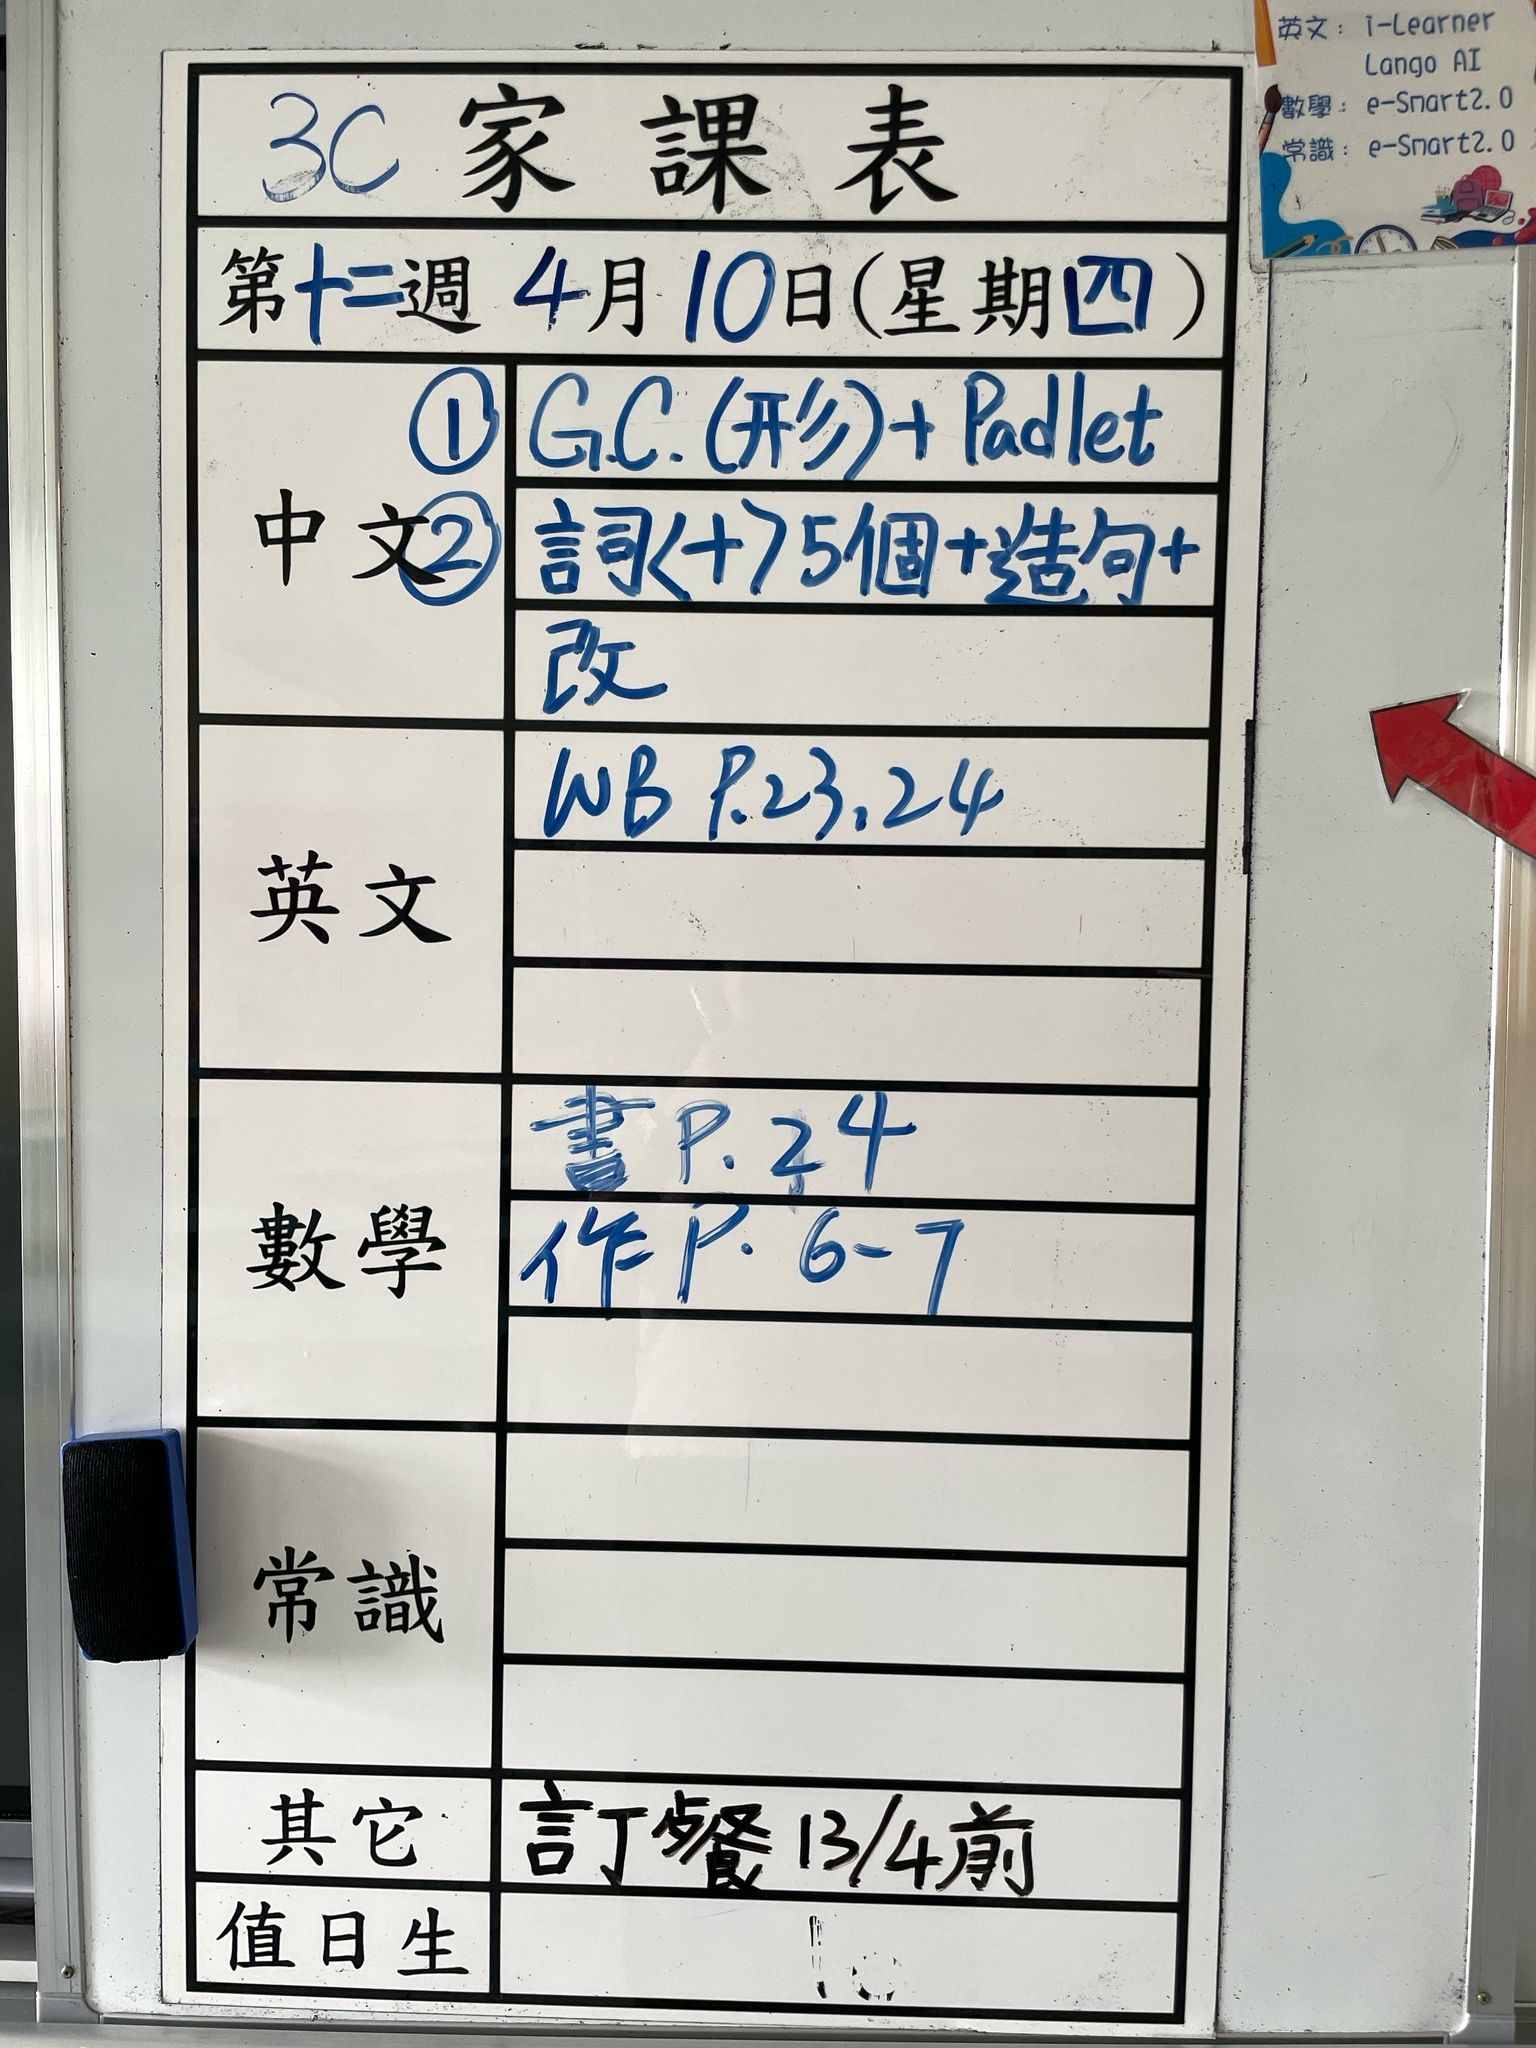 英文： i-Learner
Lango AI
數學： e-Smart2.0
常識： e-Smart2.0
3C 家課表
第十二週 4月10日(星期四)
中文
① G.C.(形)+ Padlet
② 詞〈十〉5個+造句+
改
英文
WB P.23,24
數學
書 P.24
作 P. 6-7
常識
其它
訂餐 13/4前
值日生